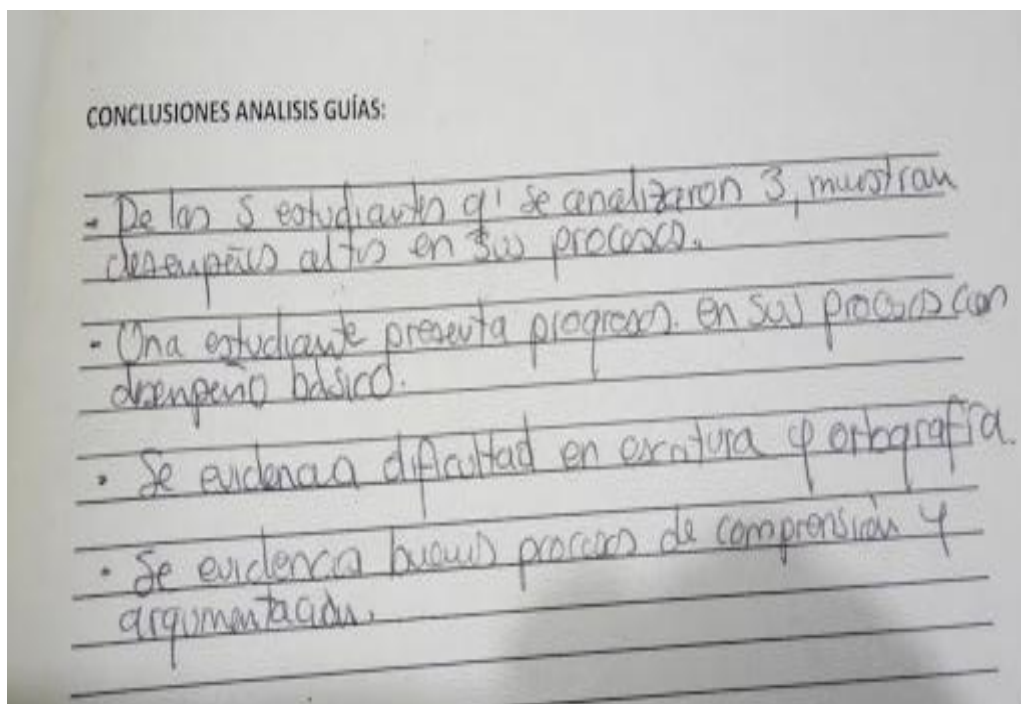 CONCLUSIONES ANALISIS GUÍAS:
- De las 5 estudiantes q' se analizaron 3, muestran
desempeños altos en sus procesos.
- Una estudiante presenta progresos. en sus procesos con
desempeño básico.
• Se evidencia dificultad en escritura y ortografía.
• Se evidencia buenos procesos de comprensión y
argumentación.